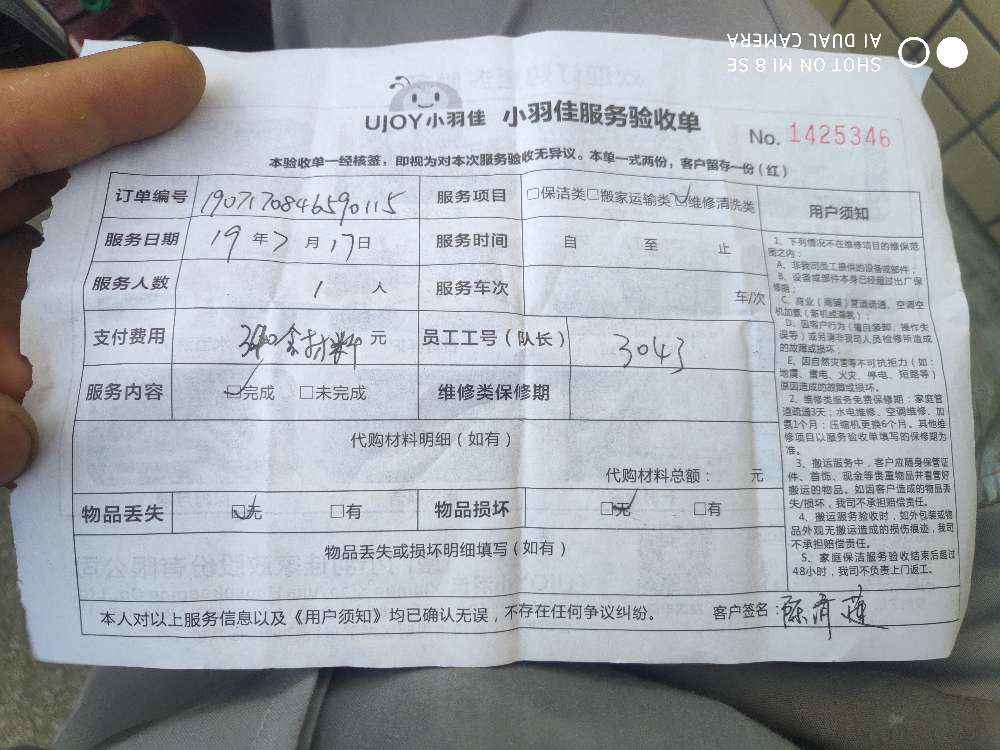 SHOT ON MI 8 SE
AI DUAL CAMERA
UJOY小羽佳 小羽佳服务验收单
No. 1425346
本验收单一经核签，即视为对本次服务验收无异议。本单一式两份，客户留存一份（红）
订单编号 1907170846590115 服务项目 □保洁类□搬家运输类☑维修清洗类
服务日期 19年7月17日 服务时间 自 至 止
服务人数 1 人 服务车次 车/次
支付费用 含材料 元 员工工号（队长） 3043
服务内容 ☑完成 □未完成 维修类保修期
代购材料明细（如有）
代购材料总额： 元
物品丢失 ☑无 □有 物品损坏 ☑无 □有
物品丢失或损坏明细填写（如有）
本人对以上服务信息以及《用户须知》均已确认无误，不存在任何争议纠纷。 客户签名：陈
用户须知
1、下列情况不在维修项目的维保范
围之内：
A、非我司员工提供的设备或部件；
B、设备或部件本身已经超过出厂保
修期；
C、商业（商铺）管道疏通、空调空
机加氨（新机或漏氨）；
D、因客户行为（擅自装卸、操作失
误等）或另请非我司人员检修所造成
的故障或损坏；
E、因自然灾害等不可抗拒力（如：
地震、雷电、火灾、停电、短路等）
原因造成的故障或损坏。
2、维修类服务免费保修期：家庭管
道疏通3天；水电维修、空调维修、加
氨1个月；压缩机更换6个月。其他维
修项目以服务验收单填写的保修期为
准。
3、搬运服务中，客户应随身保管证
件、首饰、现金等贵重物品并看管好
搬运的物品。如因客户造成的物品丢
失/损坏，我司不承担赔偿责任。
4、搬运服务验收时，如外包装或物
品外观无搬运造成的损伤痕迹，我司
不承担赔偿责任。
5、家庭保洁服务验收结束后超过
48小时，我司不负责上门返工。